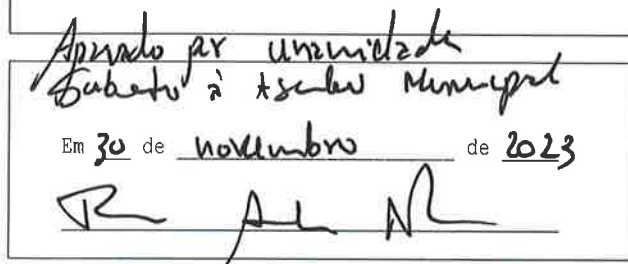 Aprovado por unanimidade
Submeter à Assembleia Municipal
Em 30 de novembro de 2023